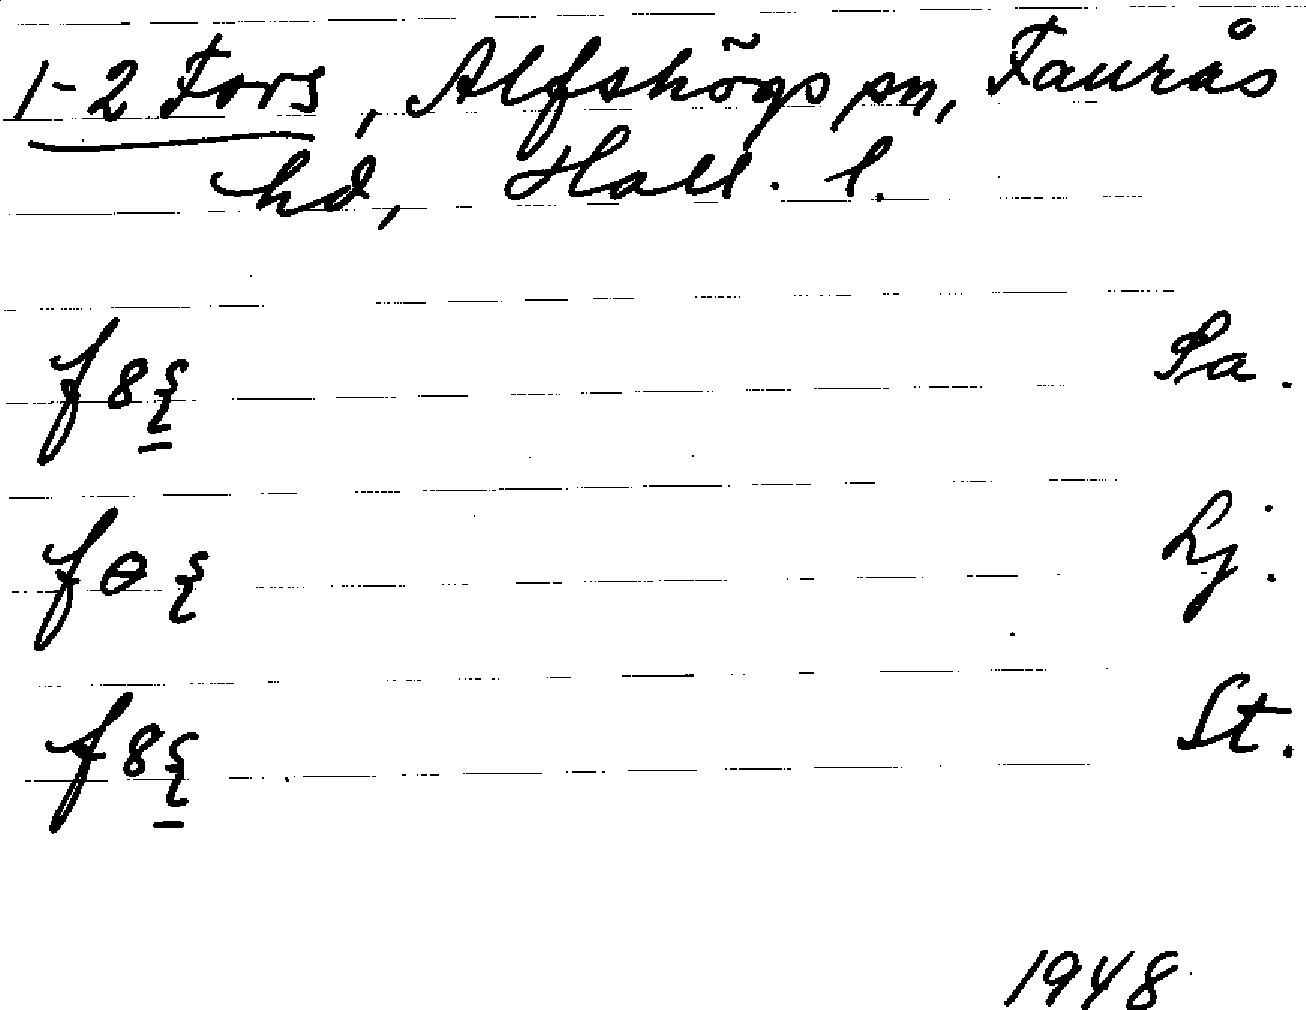 1-2 Fors, Alfshögs sn, Faurås
hd, Hall. l.
Sa.
Lj.
St.
1948